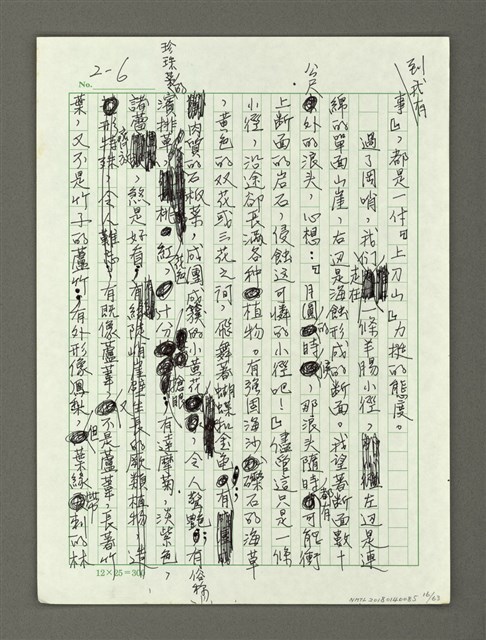 No.
2-6
到我有
事』,都是一付『上刀山』力挺的態度。
過了岡哨,我們走在一條羊腸小徑,左边是連
綿的單面山崖,右边是海蝕形成的断面。我望着断面数十
公尺外的浪头,心想:『月圓的時候,那浪头隨時都有可能衝
上断面的岩石,侵蝕这可憐的小徑吧!』儘管這只是一條
小徑,沿途卻長滿各种植物。有強固海沙礫石的海草
,黃色的双花或三花之间,飛舞著蝴蝶和金龟;有
肉質的石板菜,成團成簇的小黃花,令人驚艷;有俗稱
珍珠菜的濱排草,桃紅,十分搶眼,有達摩菊,淡紫色,
諸蕾齊放,煞是好看;有緣陡峭崖壁生長的厥類植物,造
形特殊,令人難忘;有既像蘆葦,又不是蘆葦,長着竹
葉,又不是竹子的蘆竹;有外形像鳳梨,但葉緣帶刺的林
12×25=300
NMTL20180140085 16/63